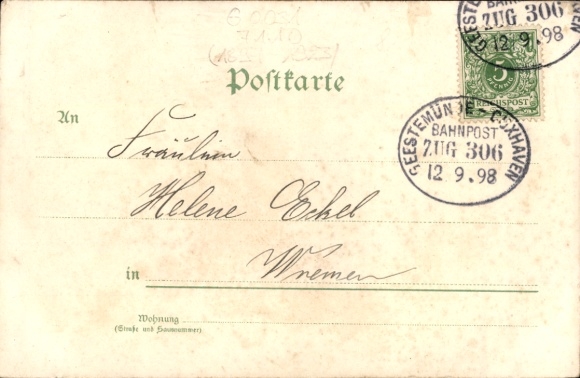 Postkarte
GEESTEMÜNDE-CUXHAVEN
BAHNPOST
ZUG 306
12 9.98
5
REICHSPOST
GEESTEMÜNDE-CUXHAVEN
BAHNPOST
ZUG 306
12 9.98
An
Fräulein
Helene Eckel
in Wremen
Wohnung
(Straße und Hausnummer)